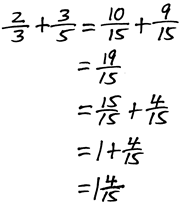 2/3 + 3/5 = 10/15 + 9/15
= 19/15
= 15/15 + 4/15
= 1 + 4/15
= 1 4/15